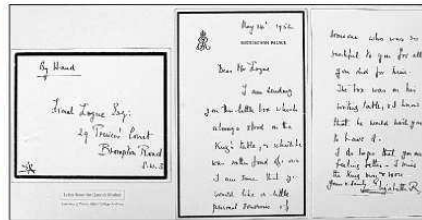 By Hand
Lionel Logue Esq:
29 Princes' Court
Brompton Road
S.W.3
May 24th 1952
BUCKINGHAM PALACE
Dear Mr Logue
I am sending
you this little box which
always stood on the
King's table, & which he
was rather fond of, as
I am sure that you
would like a little
personal souvenir of
someone who was so
grateful to you for all
you did for him.
The box was on his
writing table, & I know
that he would wish you
to have it.
I do hope that you are
feeling better. I miss
the King more & more
Elizabeth R